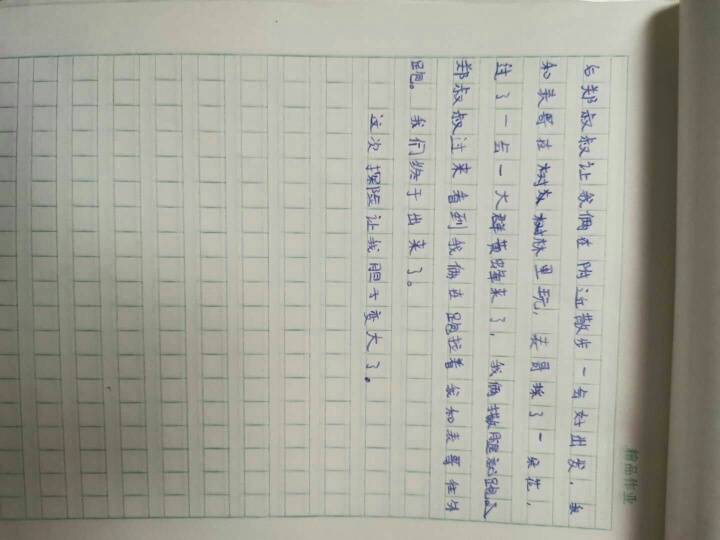 精品作业
后郑叔叔让我俩在附近散步一会好出发，我
和表哥在树林里玩，表哥採了一朵花，
过了一会一大群黄蜂来了，我俩撒腿就跑
郑叔叔过来看到我俩在跑拉着我和表哥往外
跑。我们终于出来了。
这次探险让我胆子变大了。